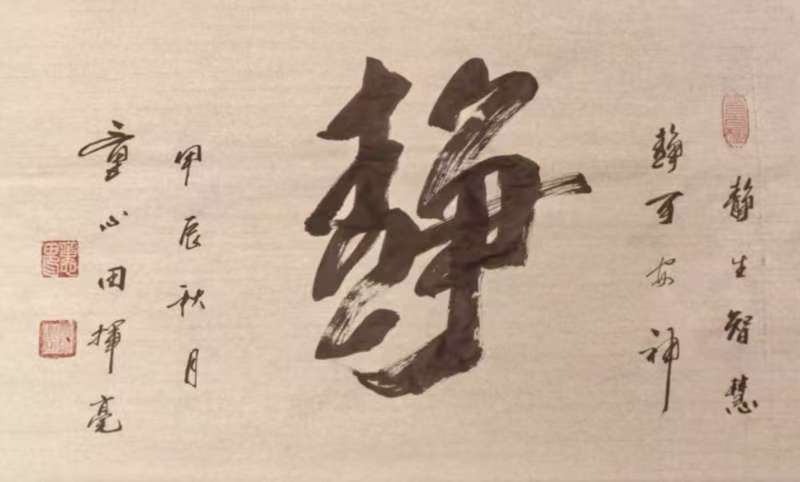 静生智慧
静可安神
静
甲辰秋月
童心田揮毫